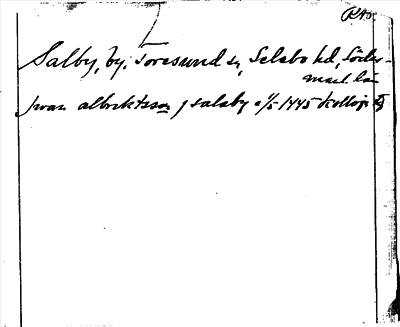 Salby, by, Toresund sn, Selebo hd, Söder-
manl. län
Jwan albrektsson j salaby 1/5 1445